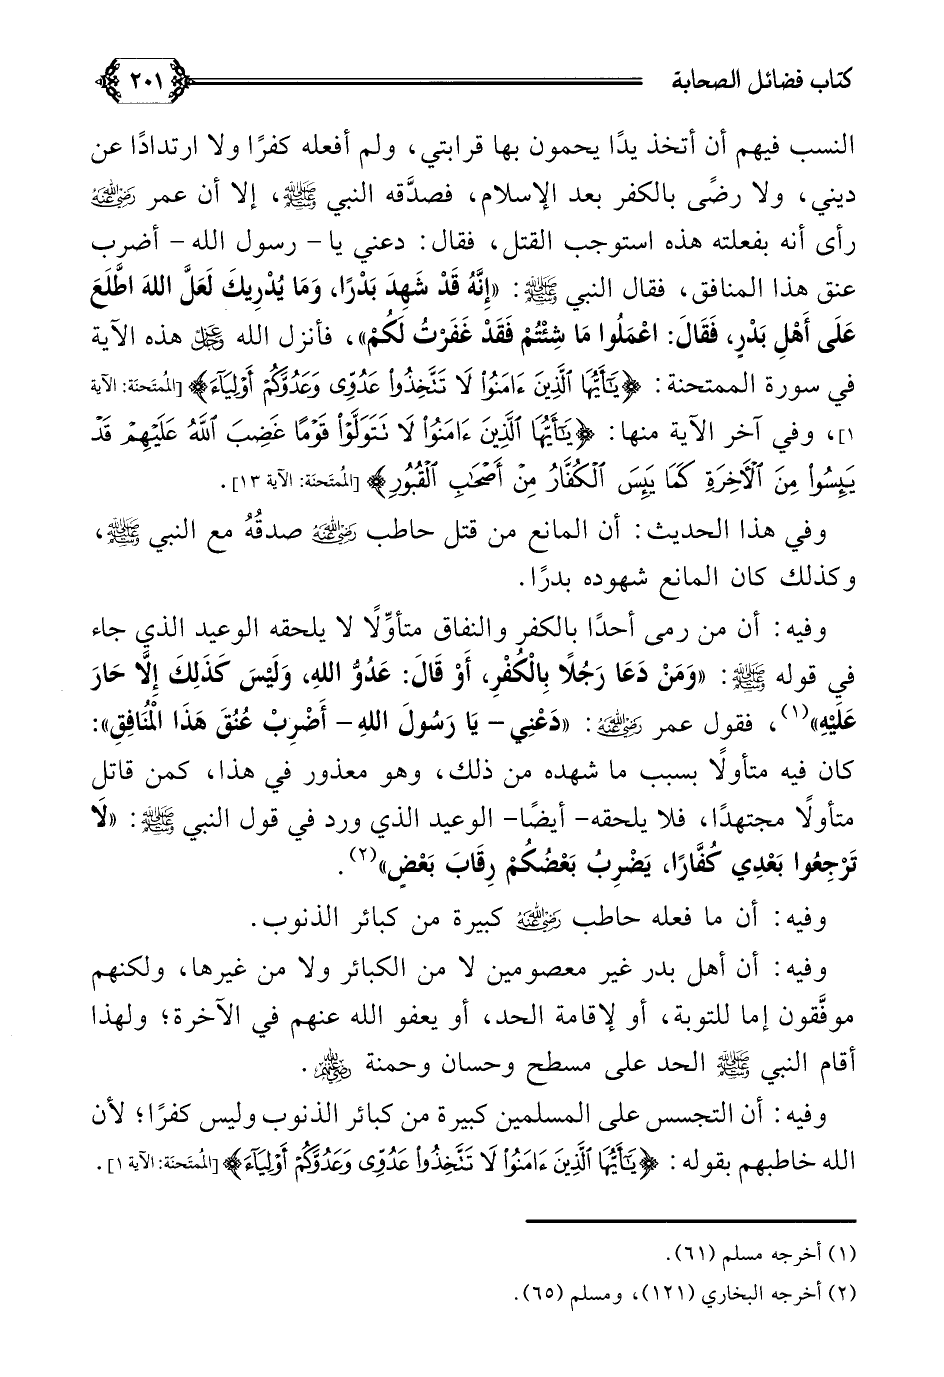 كتاب فضائل الصحابة ٢٠١
النسب فيهم أن أتخذ يدًا يحمون بها قرابتي، ولم أفعله كفرًا ولا ارتدادًا عن
ديني، ولا رضًى بالكفر بعد الإسلام، فصدَّقه النبي ﷺ، إلا أن عمر رضي الله عنه
رأى أنه بفعلته هذه استوجب القتل، فقال: دعني يا- رسول الله- أضرب
عنق هذا المنافق، فقال النبي ﷺ: «إِنَّهُ قَدْ شَهِدَ بَدْرًا، وَمَا يُدْرِيكَ لَعَلَّ اللهَ اطَّلَعَ
عَلَى أَهْلِ بَدْرٍ، فَقَالَ: اعْمَلُوا مَا شِئْتُمْ فَقَدْ غَفَرْتُ لَكُمْ»، فأنزل الله عز وجل هذه الآية
في سورة الممتحنة: ﴿يَٰٓأَيُّهَا ٱلَّذِينَ ءَامَنُوا۟ لَا تَتَّخِذُوا۟ عَدُوِّى وَعَدُوَّكُمْ أَوْلِيَآءَ﴾ [المُمتَحنَة: الآية
١]، وفي آخر الآية منها: ﴿يَٰٓأَيُّهَا ٱلَّذِينَ ءَامَنُوا۟ لَا تَتَوَلَّوْا۟ قَوْمًا غَضِبَ ٱللَّهُ عَلَيْهِمْ قَدْ
يَئِسُوا۟ مِنَ ٱلْأَخِرَةِ كَمَا يَئِسَ ٱلْكُفَّارُ مِنْ أَصْحَٰبِ ٱلْقُبُورِ﴾ [المُمتَحنَة: الآية ١٣].
وفي هذا الحديث: أن المانع من قتل حاطب رضي الله عنه صدقُهُ مع النبي ﷺ،
وكذلك كان المانع شهوده بدرًا.
وفيه: أن من رمى أحدًا بالكفر والنفاق متأوِّلًا لا يلحقه الوعيد الذي جاء
في قوله ﷺ: «وَمَنْ دَعَا رَجُلًا بِالْكُفْرِ، أَوْ قَالَ: عَدُوُّ اللهِ، وَلَيْسَ كَذَلِكَ إِلَّا حَارَ
عَلَيْهِ»(١)، فقول عمر رضي الله عنه: «دَعْنِي- يَا رَسُولَ اللهِ- أَضْرِبْ عُنُقَ هَذَا الْمُنَافِقِ»:
كان فيه متأولًا بسبب ما شهده من ذلك، وهو معذور في هذا، كمن قاتل
متأولًا مجتهدًا، فلا يلحقه- أيضًا- الوعيد الذي ورد في قول النبي ﷺ: «لَا
تَرْجِعُوا بَعْدِي كُفَّارًا، يَضْرِبُ بَعْضُكُمْ رِقَابَ بَعْضٍ»(٢).
وفيه: أن ما فعله حاطب رضي الله عنه كبيرة من كبائر الذنوب.
وفيه: أن أهل بدر غير معصومين لا من الكبائر ولا من غيرها، ولكنهم
موفَّقون إما للتوبة، أو لإقامة الحد، أو يعفو الله عنهم في الآخرة؛ ولهذا
أقام النبي ﷺ الحد على مسطح وحسان وحمنة رضي الله عنهم.
وفيه: أن التجسس على المسلمين كبيرة من كبائر الذنوب وليس كفرًا؛ لأن
الله خاطبهم بقوله: ﴿يَٰٓأَيُّهَا ٱلَّذِينَ ءَامَنُوا۟ لَا تَتَّخِذُوا۟ عَدُوِّى وَعَدُوَّكُمْ أَوْلِيَآءَ﴾ [المُمتَحنَة: الآية ١].
(١) أخرجه مسلم (٦١).
(٢) أخرجه البخاري (١٢١)، ومسلم (٦٥).